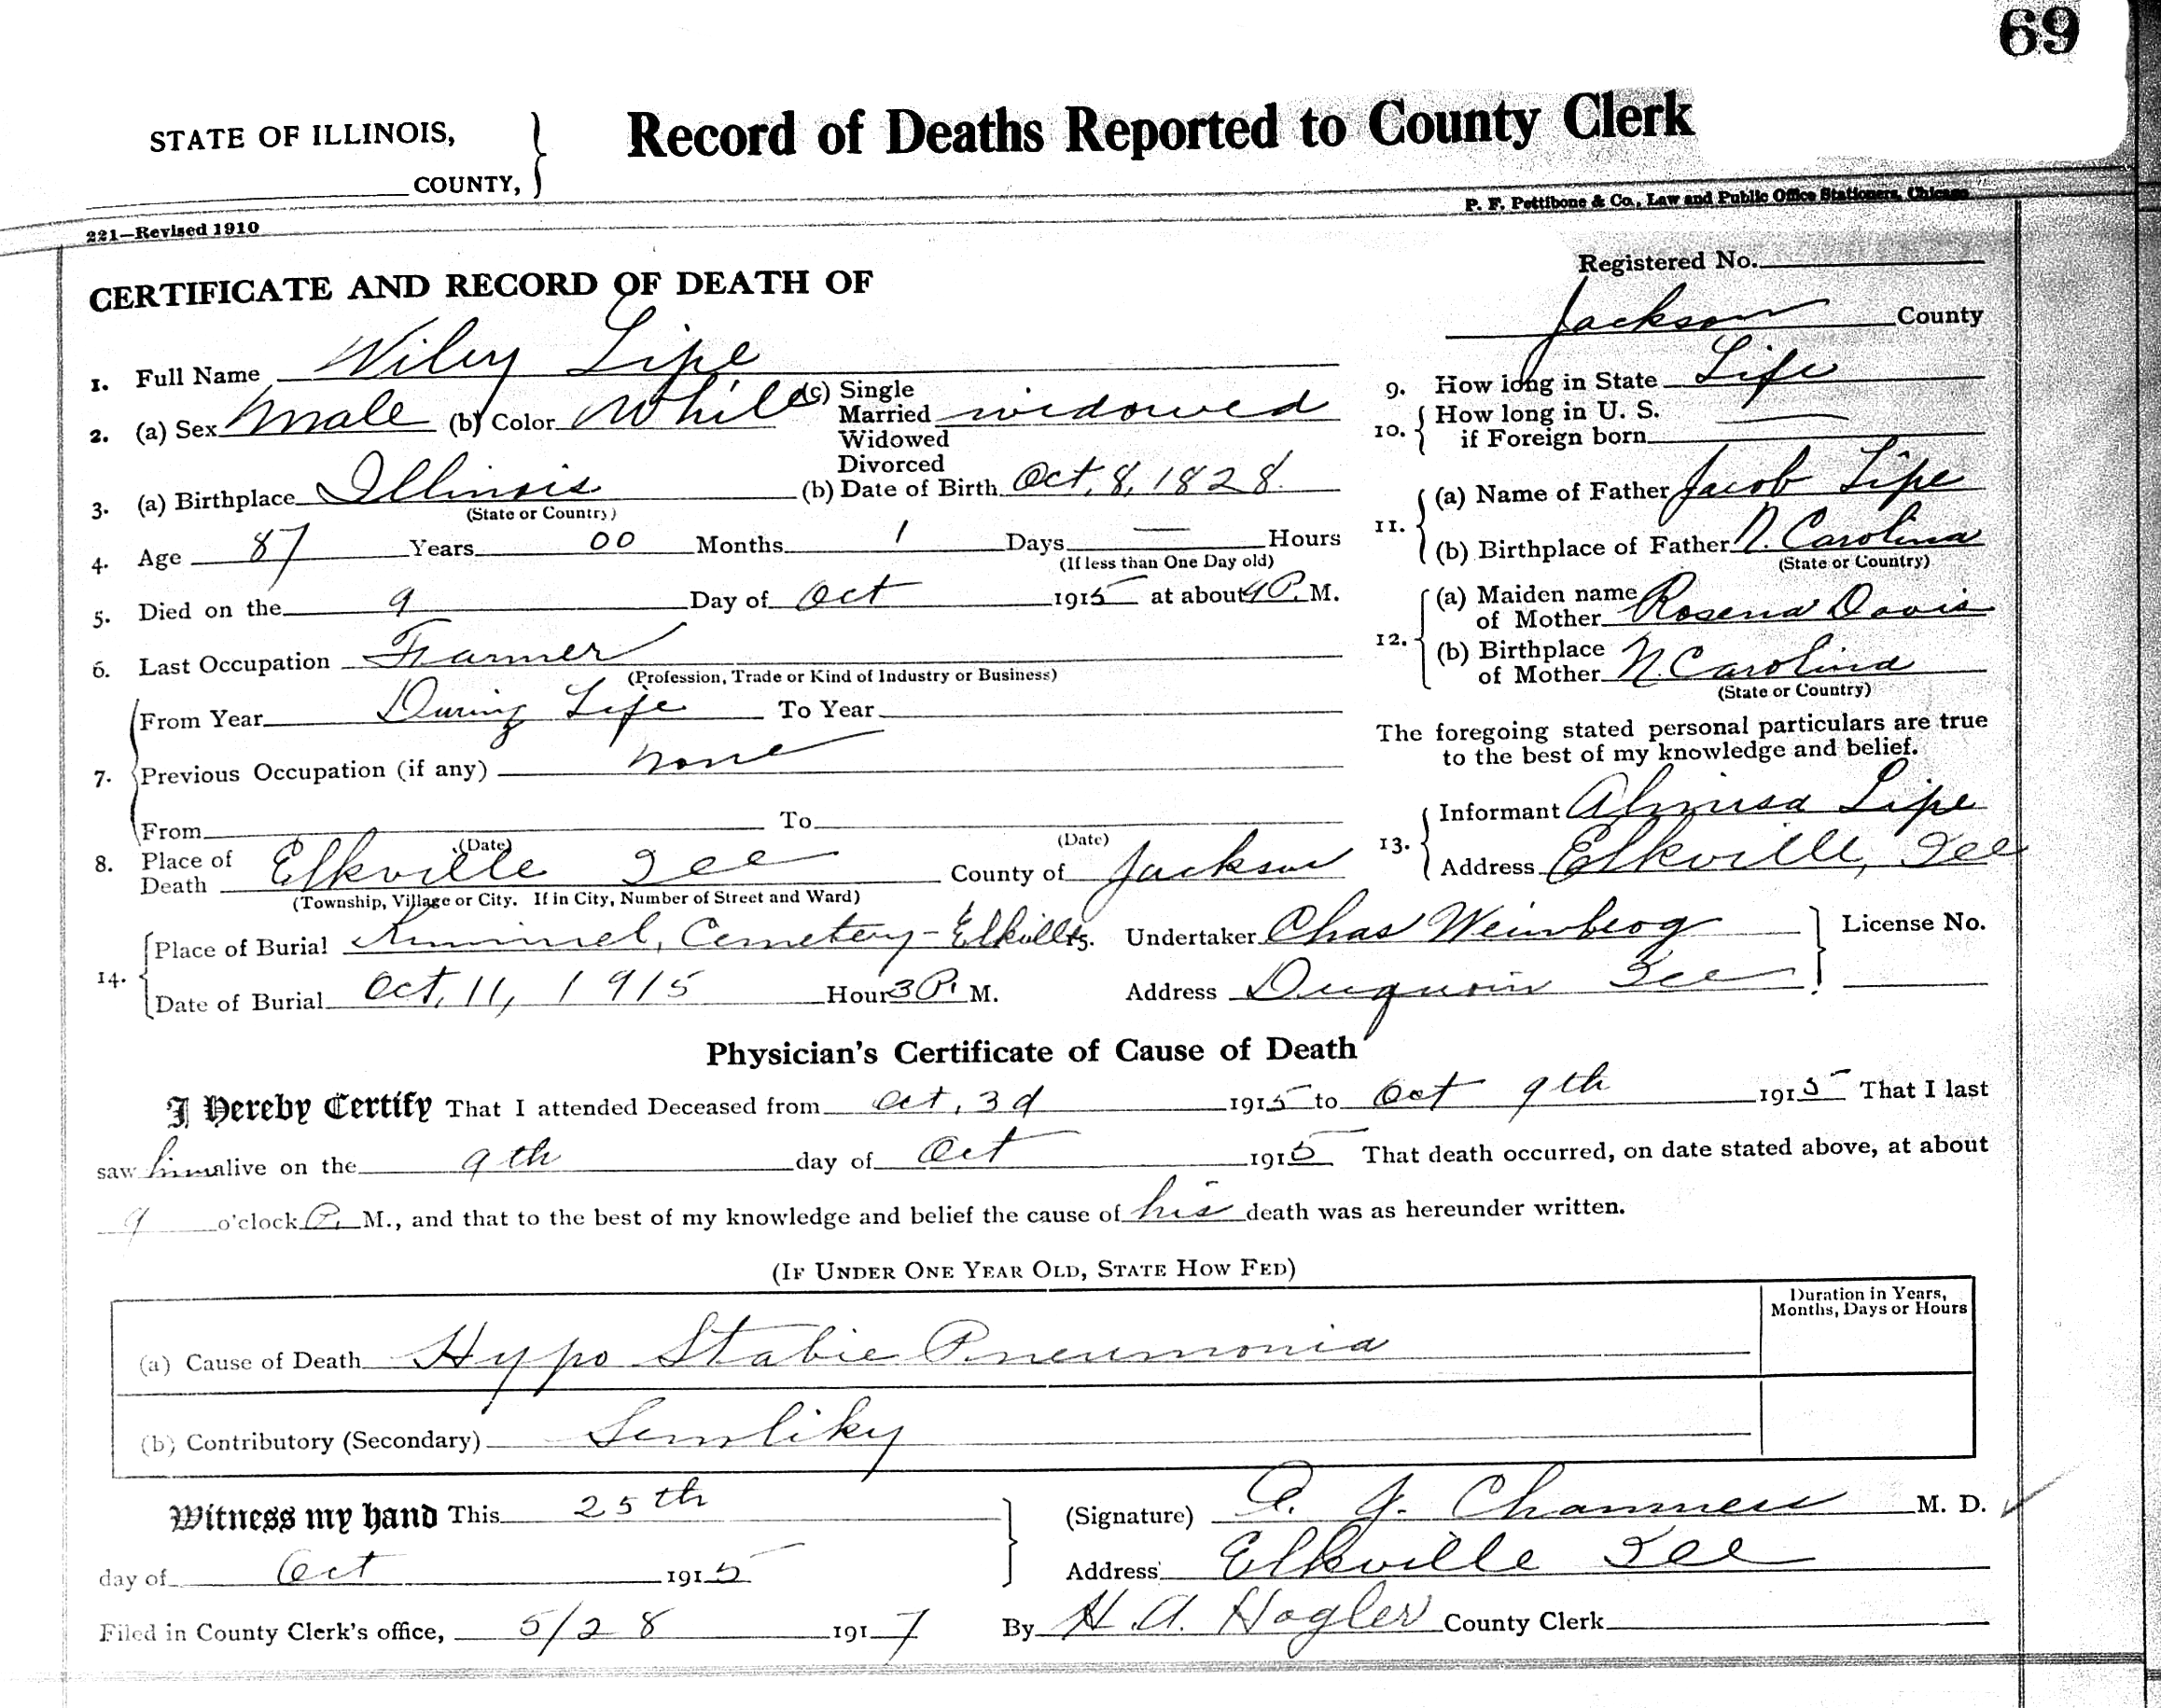 69
STATE OF ILLINOIS,
COUNTY,
Record of Deaths Reported to County Clerk
P. F. Pettibone & Co., Law and Public Office Stationers, Chicago
221—Revised 1910
CERTIFICATE AND RECORD OF DEATH OF
Registered No.
Jackson County
1. Full Name Wiley Lipe
2. (a) Sex Male (b) Color White (c) Single Married Widowed Divorced widowed
3. (a) Birthplace Illinois (b) Date of Birth Oct. 8, 1828.
(State or Country)
4. Age 87 Years 00 Months 1 Days — Hours
(If less than One Day old)
5. Died on the 9 Day of Oct 1915 at about 9 P. M.
6. Last Occupation Farmer
(Profession, Trade or Kind of Industry or Business)
7. From Year During Life To Year
Previous Occupation (if any) none
From To
(Date) (Date)
8. Place of Death Elkville Ill County of Jackson
(Township, Village or City. If in City, Number of Street and Ward)
9. How long in State Life
10. How long in U. S. if Foreign born —
11. (a) Name of Father Jacob Lipe
(b) Birthplace of Father N. Carolina
(State or Country)
12. (a) Maiden name of Mother Rosena Davis
(b) Birthplace of Mother N. Carolina
(State or Country)
The foregoing stated personal particulars are true
to the best of my knowledge and belief.
13. Informant Lipe
Address Elkville, Ill
14. Place of Burial Kimmel, Cemetery - Undertaker Chas License No.
Date of Burial Oct. 11, 1915 Hour 3 P. M. Address Duquoin Ill
Physician's Certificate of Cause of Death
I Hereby Certify That I attended Deceased from Oct, 3d 1915 to Oct 9th 1915 That I last
saw him alive on the 9th day of Oct 1915 That death occurred, on date stated above, at about
9 o'clock P. M., and that to the best of my knowledge and belief the cause of his death was as hereunder written.
(IF UNDER ONE YEAR OLD, STATE HOW FED)
Duration in Years,
Months, Days or Hours
(a) Cause of Death Hypo Static Pneumonia
(b) Contributory (Secondary)
Witness my hand This 25th
day of Oct 1915
(Signature) M. D.
Address Elkville Ill
Filed in County Clerk's office, 5/28 1917 By H. A. Hagler County Clerk